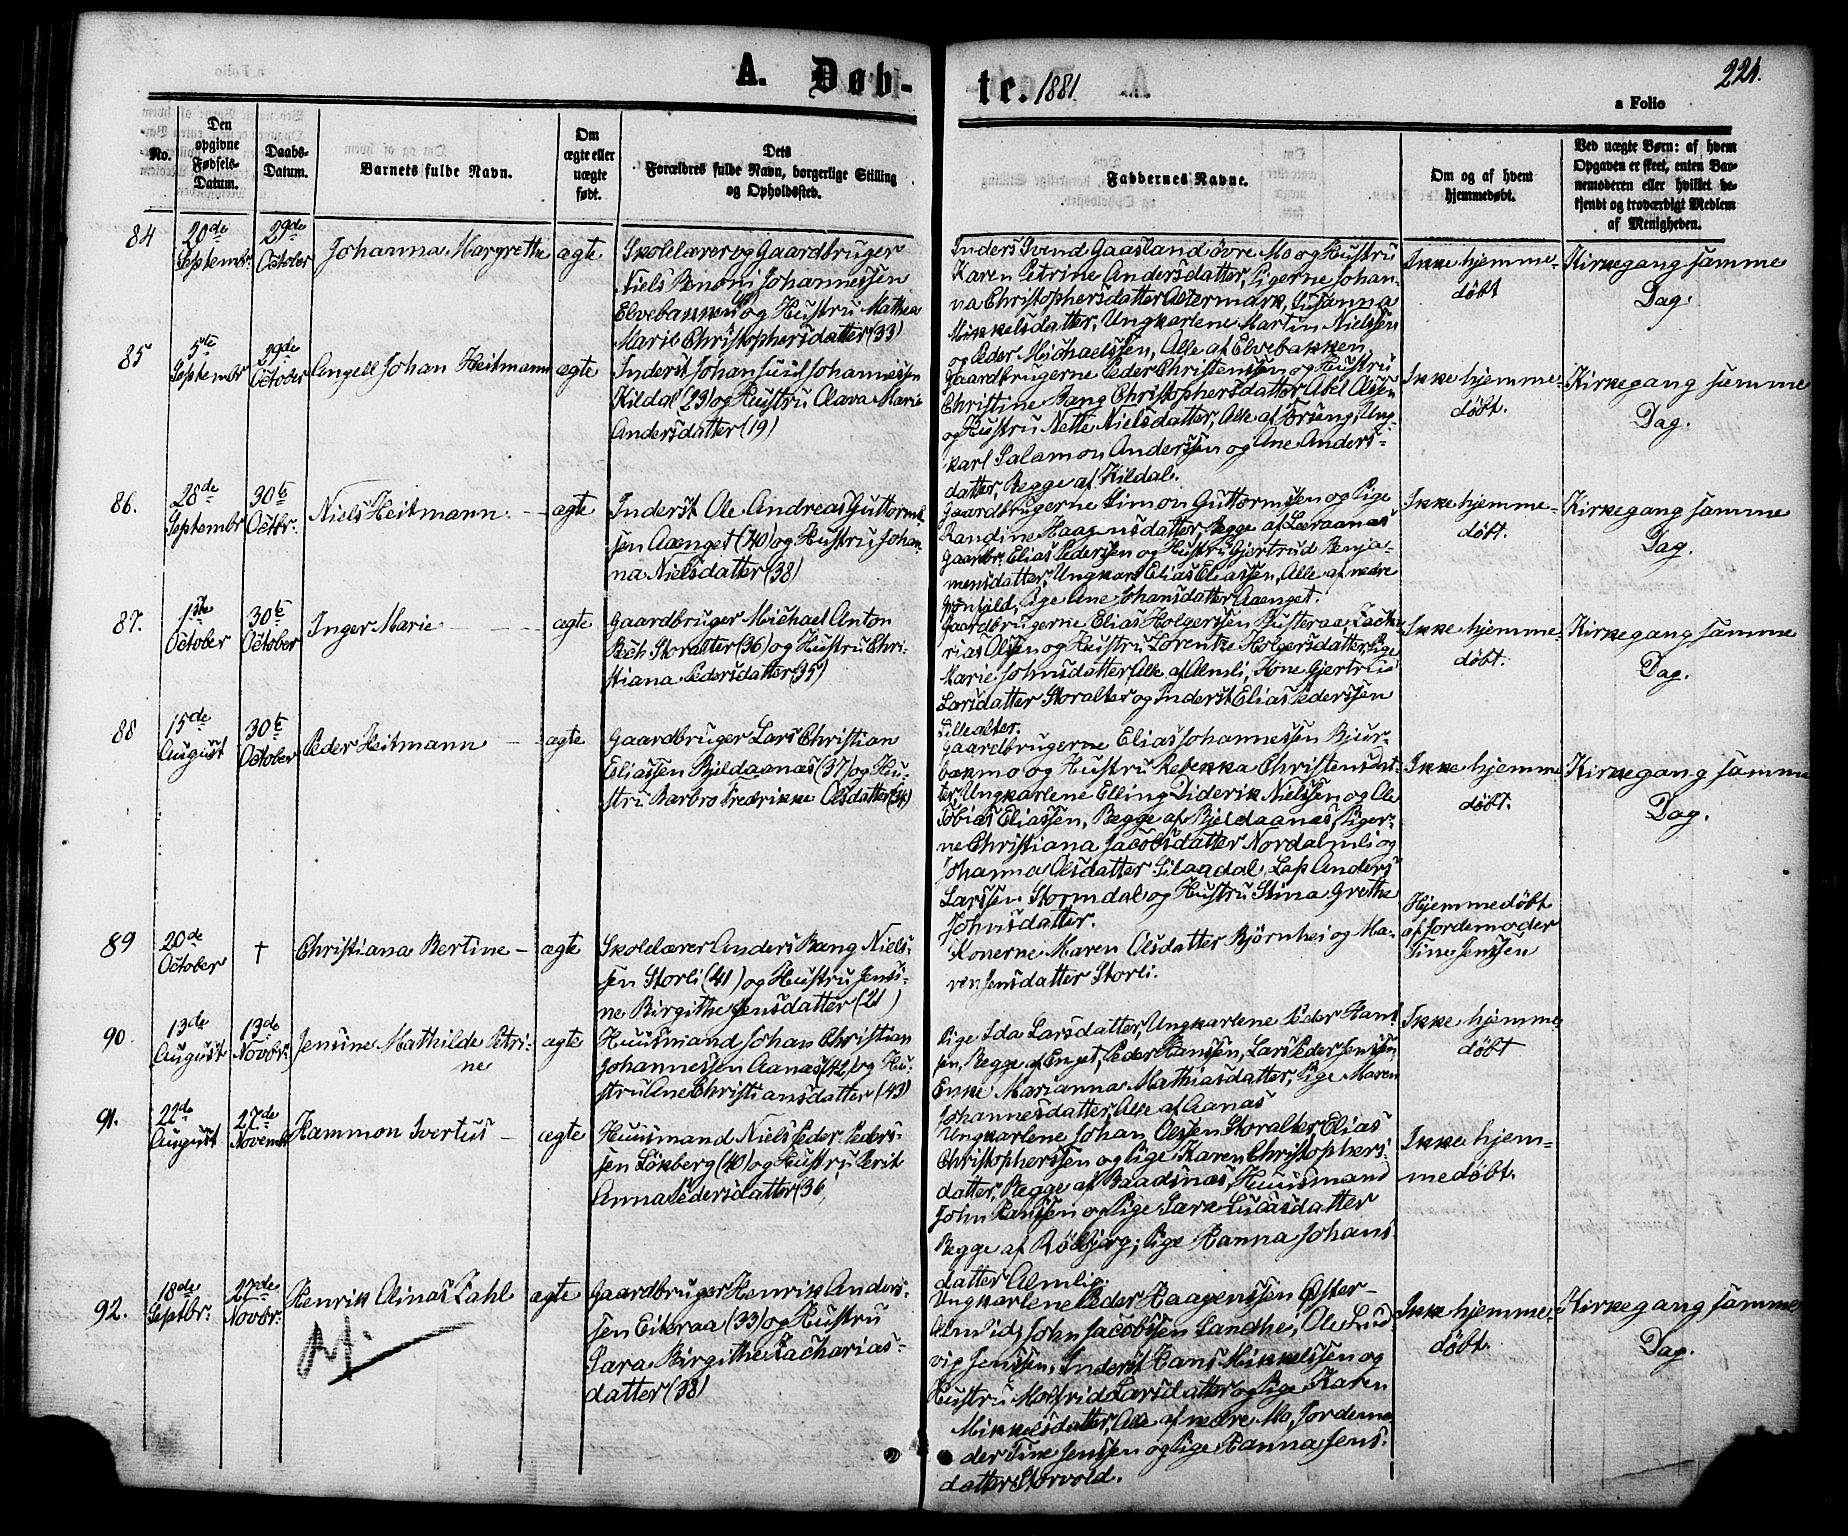 A. Døb-
te. 1881.
a Folio
221.
No.
Den opgivne Fødsels-Datum.
Daabs-Datum.
Barnets fulde Navn.
Om ægte eller uægte født.
Dets
Forældres fulde Navn, borgerlige Stilling
og Opholdssted.
Faddernes Navne.
Om og af hvem
hjemmedøbt.
Ved uægte Børn: af hvem
Opgaven er skeet, enten Bar-
nemoderen eller hvilket be-
kjendt og troværdigt Medlem
af Menigheden.
84
20de Septembr.
29de October
Johanna Margrethe
ægte
Skolelærer og Gaardbruger
Niels Benoni Johannessen
Elvebakken og Hustru Mathea
Marie Christophersdatter (33)
Inderst Svend Gaasland övre Mo og Hustru
Karen Petrine Andersdatter, Pigerne Johan-
na Christophersdatter Astermark, Susanna
Mikkelsdatter, Ungkarlene Martin Nielssen
og Peder Michaelssen, Alle af Elvebakken
Ikke hjemme-
døbt
Kirkegang samme
Dag.
85
5te Septembr
29de October
Angell Johan Heitmann
ægte
Inderst Johan Juul Johannessen
Kildal (23) og Hustru Olava Marie
Andersdatter (19)
Gaardbrugerne Peder Christenssen og Hustru
Christine Bang Christophersdatter, Abel Olsen
og Hustru Nette Nielsdatter, Alle af Forseng, Ung-
karl Salamon Anderssen og Ane Anders-
datter, Begge af Kildal.
Ikke hjemme-
døbt.
Kirkegang samme
Dag.
86.
28de Septembr
30te Octbr.
Niels Heitmann.
ægte
Inderst Ole Andreas Guttorms-
sen Aaenget (40) og Hustru Johan-
na Nielsdatter (38)
Gaardbrugerne Simon Guttormsen og Pige
Randine Haagensdatter, Begge af Leeraanæs
Gaardbr. Elias Pederssen og Hustru Gjertrud Benja-
mensdatter, Ungkarl Elias Eliassen, Alle af nedre
Grönfjeld, Pige Ane Johansdatter Aaenget.
Ikke hjemme-
døbt.
Kirkegang samme
Dag.
87.
1ste October
30te October
Inger Marie
ægte
Gaardbruger Michael Anton
Bech Storalter (36) og Hustru Chri-
stiana Pedersdatter (35)
Gaardbrugerne Elias Holgerssen Zacha-
rias Olsen og Hustru Lorentze Holgersdatter, Pige
Marie Johnsdatter, Alle af Almli, Kone Gjertrud
Larsdatter Storalter og Inderst Elias Pederssen
Lillealter.
Ikke hjemme-
døbt.
Kirkegang samme
Dag.
88
15de August
30te October
Peder Heitmann
ægte
Gaardbruger Lars Christian
Eliassen Bjeldaanæs (37) og Hu-
stru Barbro Fredrikke Olsdatter (34)
Gaardbrugerne Elias Johannessen Bjur-
bækmo og Hustru Rebekka Christensdat-
ter, Ungkarlene Elling Diderik Nielssen og Ole
Tobias Eliassen, Begge af Bjeldaanæs, Piger-
ne Christiana Jacobsdatter Nordalmli og
Johanna Olsdatter Plaagdal, Lap Anders
Larssen Stormdal og Hustru Stina Grethe
Johnsdatter.
Ikke hjemme
døbt.
Kirkegang samme
Dag.
89
20de October
†
Christiana Bertine -
ægte
Skolelærer Anders Bang Niels-
sen Storli (41) og Hustru Jensi-
ne Birgithe Jensdatter (21)
Konerne Maren Olsdatter Björnhei og Ma-
ren Jensdatter Storli.
Hjemmedøbt
af Jordemoder
Tine Jenssen
90
13de August
13de Novbr.
Jensine Mathilde Petri-
ne
ægte
Huusmand Johan Christian
Johannessen Aanæs (42) og Hu-
stru Ane Christiansdatter (43)
Pige Ida Larsdatter, Ungkarlene Peder Hans-
sen, Begge af Enget, Peder Hanssen, Lars Peder Jenssen
Enke Marianna Mathiasdatter, Pige Maren
Johannesdatter, Alle af Aanæs
Ikke hjemme
døbt
91.
22de August
27de Novembr
Hammon Ivertus -
ægte
Huusmand Niels Peder Peders-
sen Lökberg (40) og Hustru Berit
Anna Pedersdatter (36)
Ungkarlene Johan Olssen Storalter, Elias
Christopherssen og Pige Karen Christophers-
datter, Begge af Baadsnæs, Huusmand
John Paulssen og Pige Sara Lucasdatter
Begge af Röbjörg; Pige Hanna Johans-
datter Almli.
Ikke hjem-
medøbt.
92.
18de Septbr.
27de Novbr.
Henrik Ainas Zahl
ægte
Gaardbruger Henrik Anders-
sen Eiteraa (33) og Hustru
Sara Birgithe Zacharias-
datter (38)
Ungkarlene Peder Haagenssen Öster-
John Jacobssen Sandhei, Ole Lud-
vig Jenssen, Inderst Hans Mikkelssen og
Hustru Marfrid Larsdatter og Pige Karen
Mikkelsdatter, Alle af nedre Mo, Jordemo-
der Tine Jenssen og Pige Hanna Jens-
datter Storvold.
Ikke hjemme-
døbt.
Kirkegang samme
Dag.